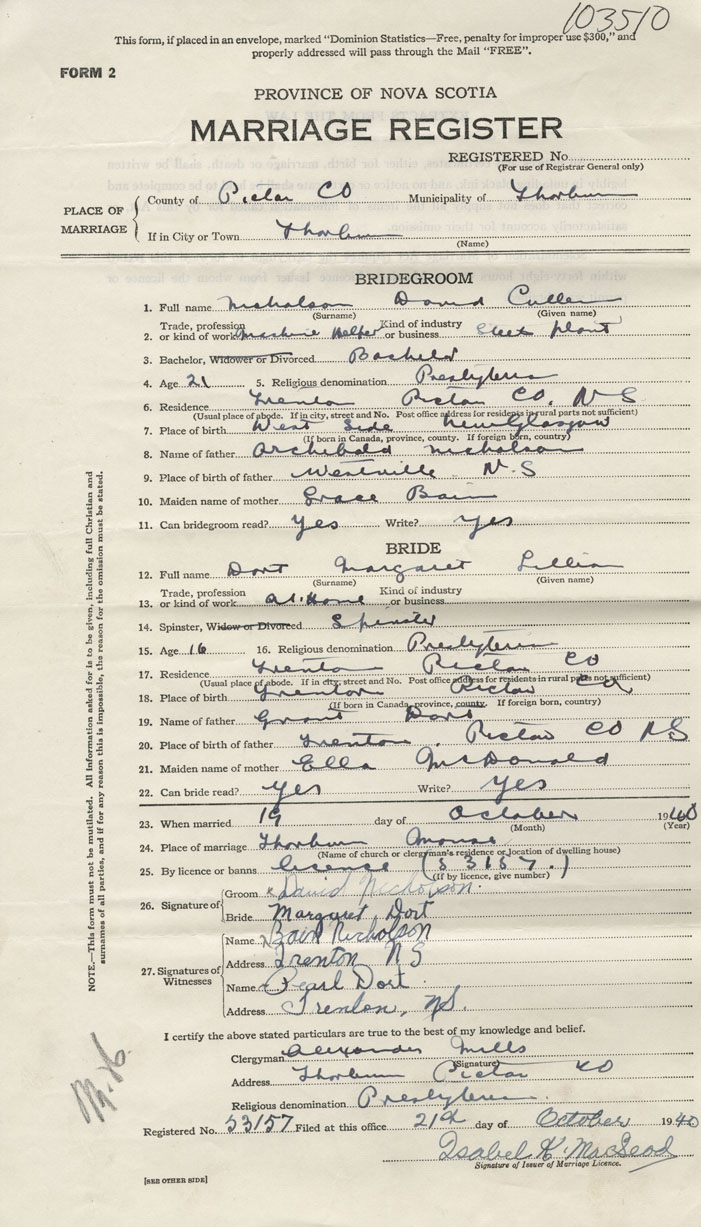 103510
This form, if placed in an envelope, marked "Dominion Statistics—Free, penalty for improper use $300," and
properly addressed will pass through the Mail "FREE".
FORM 2
PROVINCE OF NOVA SCOTIA
MARRIAGE REGISTER
REGISTERED No.
(For use of Registrar General only)
PLACE OF MARRIAGE
County of Pictou CO Municipality of Thorburn
If in City or Town Thorburn
(Name)
BRIDEGROOM
1. Full name Nicholson David Cullen
(Surname) (Given name)
2. Trade, profession or kind of work Machine Helper Kind of industry or business Steel plant
3. Bachelor, Widower or Divorced Bachelor
4. Age 21 5. Religious denomination Presbyterian
6. Residence Trenton Pictou CO. N S
(Usual place of abode. If in city, street and No. Post office address for residents in rural parts not sufficient)
7. Place of birth West Side New Glasgow
(If born in Canada, province, county. If foreign born, country)
8. Name of father Archibald Nicholson
9. Place of birth of father Westville N.S
10. Maiden name of mother Grace Bain
11. Can bridegroom read? Yes Write? Yes
BRIDE
12. Full name Dort Margaret Lillian
(Surname) (Given name)
13. Trade, profession or kind of work At Home Kind of industry or business
14. Spinster, Widow or Divorced Spinster
15. Age 16 16. Religious denomination Presbyterian
17. Residence Trenton Pictou CO
(Usual place of abode. If in city, street and No. Post office address for residents in rural parts not sufficient)
18. Place of birth Trenton Pictou Co
(If born in Canada, province, county. If foreign born, country)
19. Name of father Grant Dort
20. Place of birth of father Trenton. Pictou CO NS
21. Maiden name of mother Ella McDonald
22. Can bride read? Yes Write? Yes
23. When married 19 day of October 1940
(Month) (Year)
24. Place of marriage Thorburn Manse
(Name of church or clergyman's residence or location of dwelling house)
25. By licence or banns licence (53157.)
(If by licence, give number)
26. Signature of
Groom x David Nicholson.
Bride Margaret Dort
27. Signatures of Witnesses
Name x Bain Nicholson
Address Trenton NS
Name Pearl Dort
Address Trenton, N.S.
I certify the above stated particulars are true to the best of my knowledge and belief.
Clergyman Alexander Mills
(Signature)
Address Thorburn Pictou CO
Religious denomination Presbyterian.
Registered No. 53157 Filed at this office 21st day of October 1940
Isabel K. MacLeod
Signature of Issuer of Marriage Licence.
[SEE OTHER SIDE]
NOTE.—This form must not be mutilated. All information asked for is to be given, including full Christian and
surnames of all parties, and if for any reason this is impossible, the reason for the omission must be stated.